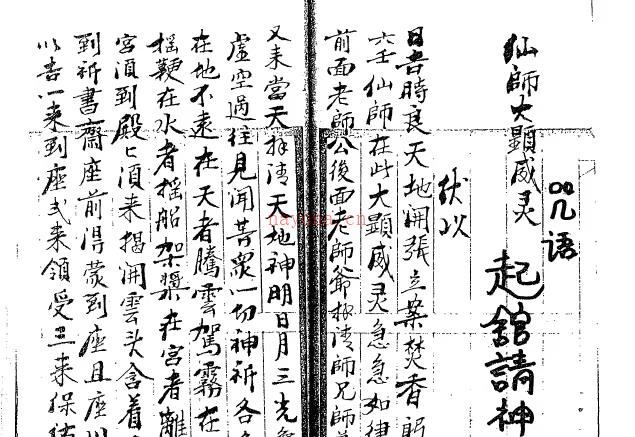 咒语
起舘請神
仙師大顯威灵
伏以
日吉時良天地開張立案焚香
六壬仙師在此大顯威灵急急如律
前面老師公後面老師爺拜請師兄師
又来當天拜請天地神明日月三光
虛空過往見聞菩眾一切神祈各
在地不遠在天者騰雲駕霧在
摇鞕在水者摇船架槳在宮者離
宮須到殿匕須来揭開雲头含着
到祈書齋座前得蒙到座且座
以告一来到座弍来領受三来保